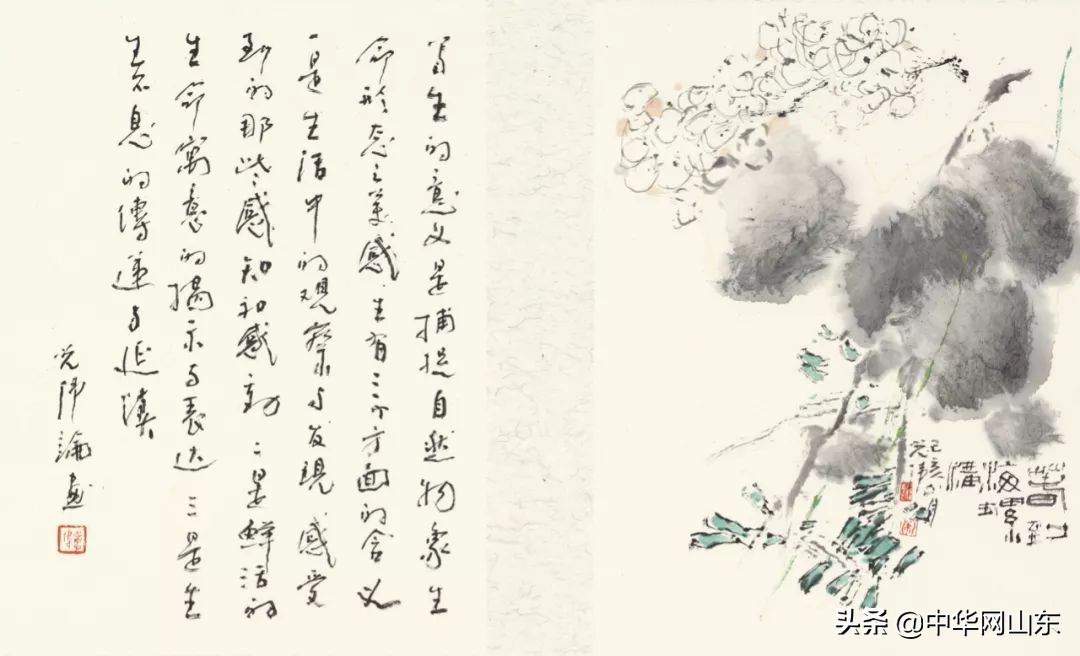 写生的意义是捕捉自然物象生
命形态之美感 有三个方面的含义
一是生活中的观察与发现 感受
到的那些感知和感动 二是鲜活的
生命寓意的揭示与表达 三是生
生不息的傳遞与延续
伟論画
春到
己亥
头条 @中华网山东